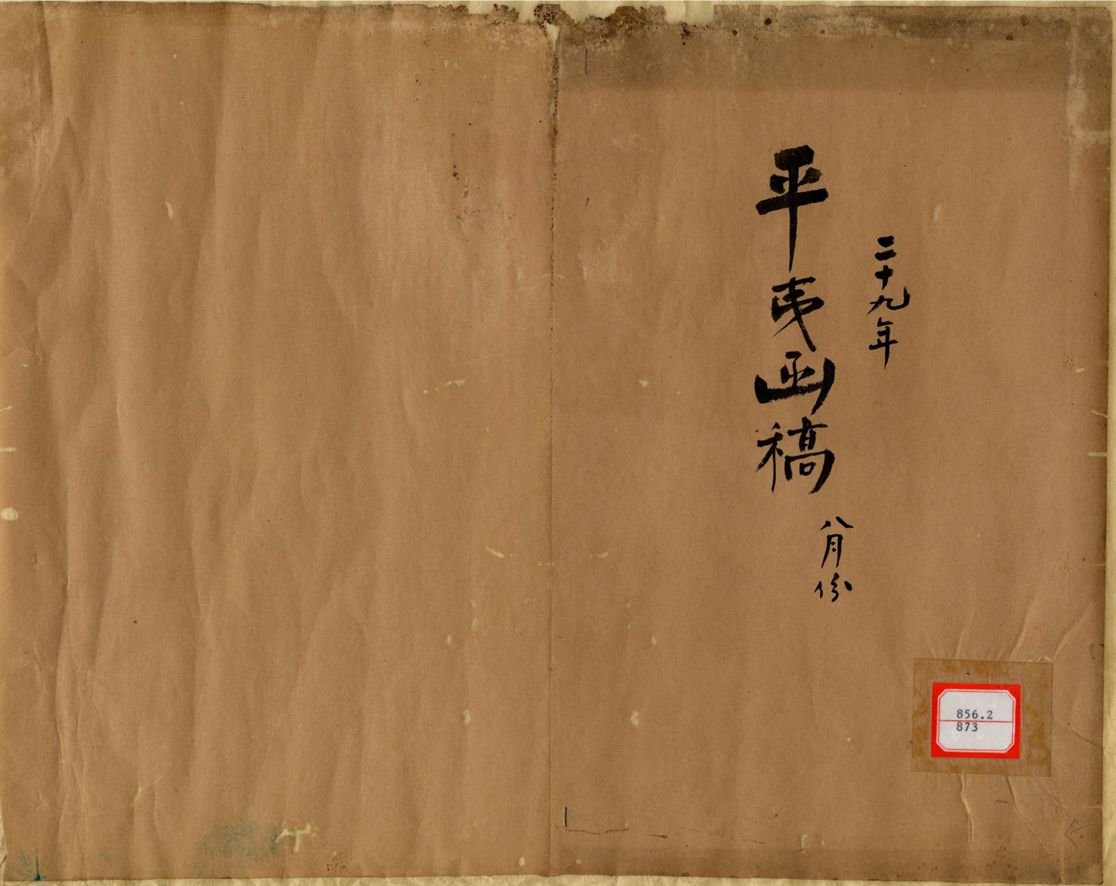 二十九年
平夷函稿
八月份
856.2
873